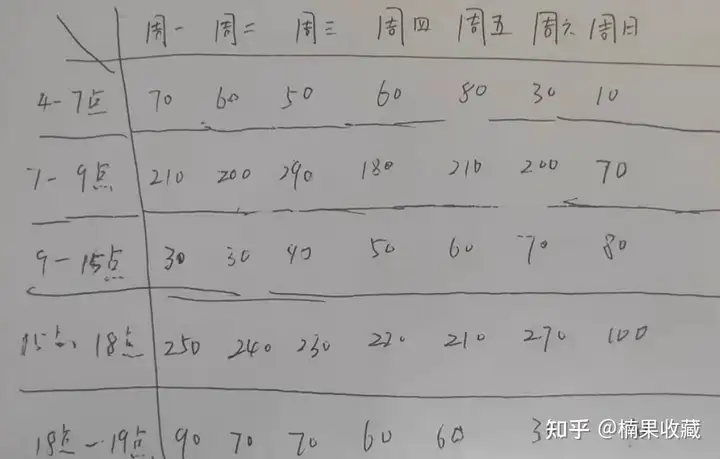 周一 周二 周三 周四 周五 周六 周日
4-7点 70 60 50 60 80 30 10
7-9点 210 200 290 180 210 200 70
9-15点 30 30 40 50 60 70 80
15点、18点 250 240 230 220 210 270 100
18点-19点 90 70 70 60 60 3
知乎 @楠果收藏